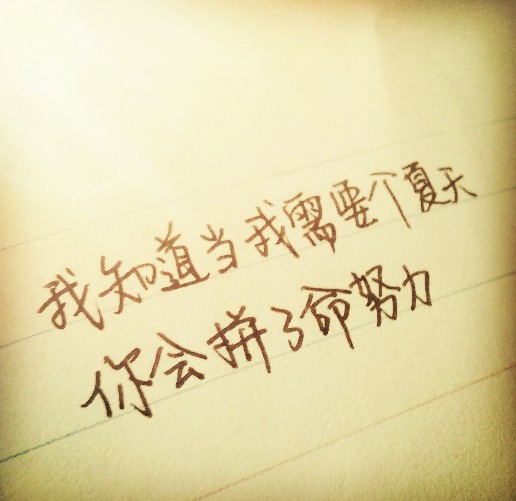 我知道当我需要个夏天
你会拼了命努力